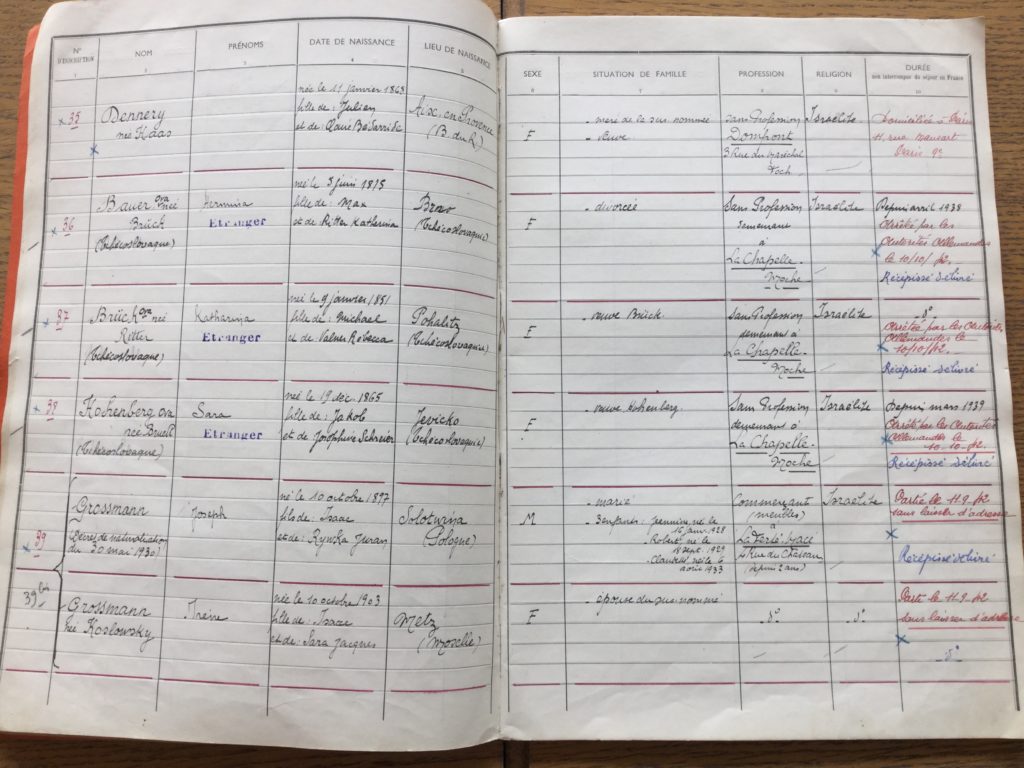 N° D'INSCRIPTION NOM PRÉNOMS DATE DE NAISSANCE LIEU DE NAISSANCE SEXE SITUATION DE FAMILLE PROFESSION RELIGION DURÉE non interrompue du séjour en France
1 2 3 4 5 6 7 8 9 10
née le 11 janvier 1863
35 Dennery fille de: Julien Aix-en-Provence - mère de la sus. nommée Sans Profession Israélite Domiciliée à Paris
née Haas et de: (B. du R.) F - veuve Domfront 11, rue Mansart
3 Rue du Maréchal Paris 9e
Foch
née le 3 juin 1875
Bauer ova née Hermina fille de: Max Brno - divorcée Sans Profession Israélite Depuis avril 1938
36 Brück Etranger et de Ritter Katharina (Tchécoslovaquie) F demeurant Arrêtée par les
(Tchécoslovaque) à Autorités Allemandes
La Chapelle le 10/10/42
Moche Récépissé délivré
née le 9 janvier 1851
37 Brück ova née Katharina fille de: Michael Pohalitz - veuve Brück Sans Profession Israélite d°
Ritter Etranger et de Rébecca (Tchécoslovaquie) F demeurant à Arrêtée par les Autorités
(Tchécoslovaque) La Chapelle Allemandes le
Moche 10/10/42
Récépissé délivré
née le 19 déc. 1865
38 Kohenberg ova Sara fille de: Jakob Jevicko - veuve Kohenberg Sans Profession Israélite Depuis mars 1939
née Bruell Etranger et de Josephine Schreier (Tchécoslovaquie) F demeurant à Arrêtée par les Autorités
(Tchécoslovaque) La Chapelle Allemandes le
Moche 10-10-42
Récépissé délivré
né le 10 octobre 1897 - marié Commerçant Israélite Partie le 11.9.42
Grossmann Joseph fils de: Isaac Solotwina M - 3 enfants: Jeannine, née le (meubles) sans laisser d'adresse
39 (Décret de naturalisation et de: Rywka (Pologne) 15 janv. 1928 à
du 30 mai 1930) - Robert né le La Ferté-Macé
18 sept. 1929 4 Rue du Château Récépissé délivré
né le 6 (depuis 2 ans)
avril 1933
39 bis née le 10 octobre 1903 - épouse du sus nommé Parti le 11.9.42
Grossmann fille de: Isaac Metz F d° d° sans laisser d'adresse
née Koslowsky et de: Sara Jacques (Moselle)
d°